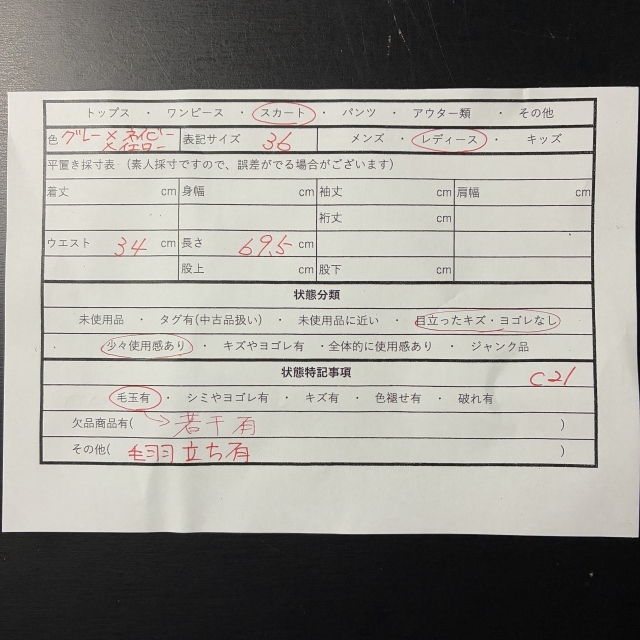 トップス ・ ワンピース ・ スカート ・ パンツ ・ アウター類 ・ その他
色 グレー×ネイビー×イエロー 表記サイズ 36 メンズ ・ レディース ・ キッズ
平置き採寸表 (素人採寸ですので、誤差がでる場合がございます)
着丈 cm 身幅 cm 袖丈 cm 肩幅 cm
裄丈 cm
ウエスト 34 cm 長さ 69.5 cm
股上 cm 股下 cm
状態分類
未使用品 ・ タグ有(中古品扱い) ・ 未使用品に近い ・ 目立ったキズ・ヨゴレなし
少々使用感あり ・ キズやヨゴレ有 ・全体的に使用感あり ・ ジャンク品
状態特記事項
C21
毛玉有 ・ シミやヨゴレ有 ・ キズ有 ・ 色褪せ有 ・ 破れ有
欠品商品有( 若干有 )
その他( 毛羽立ち有 )